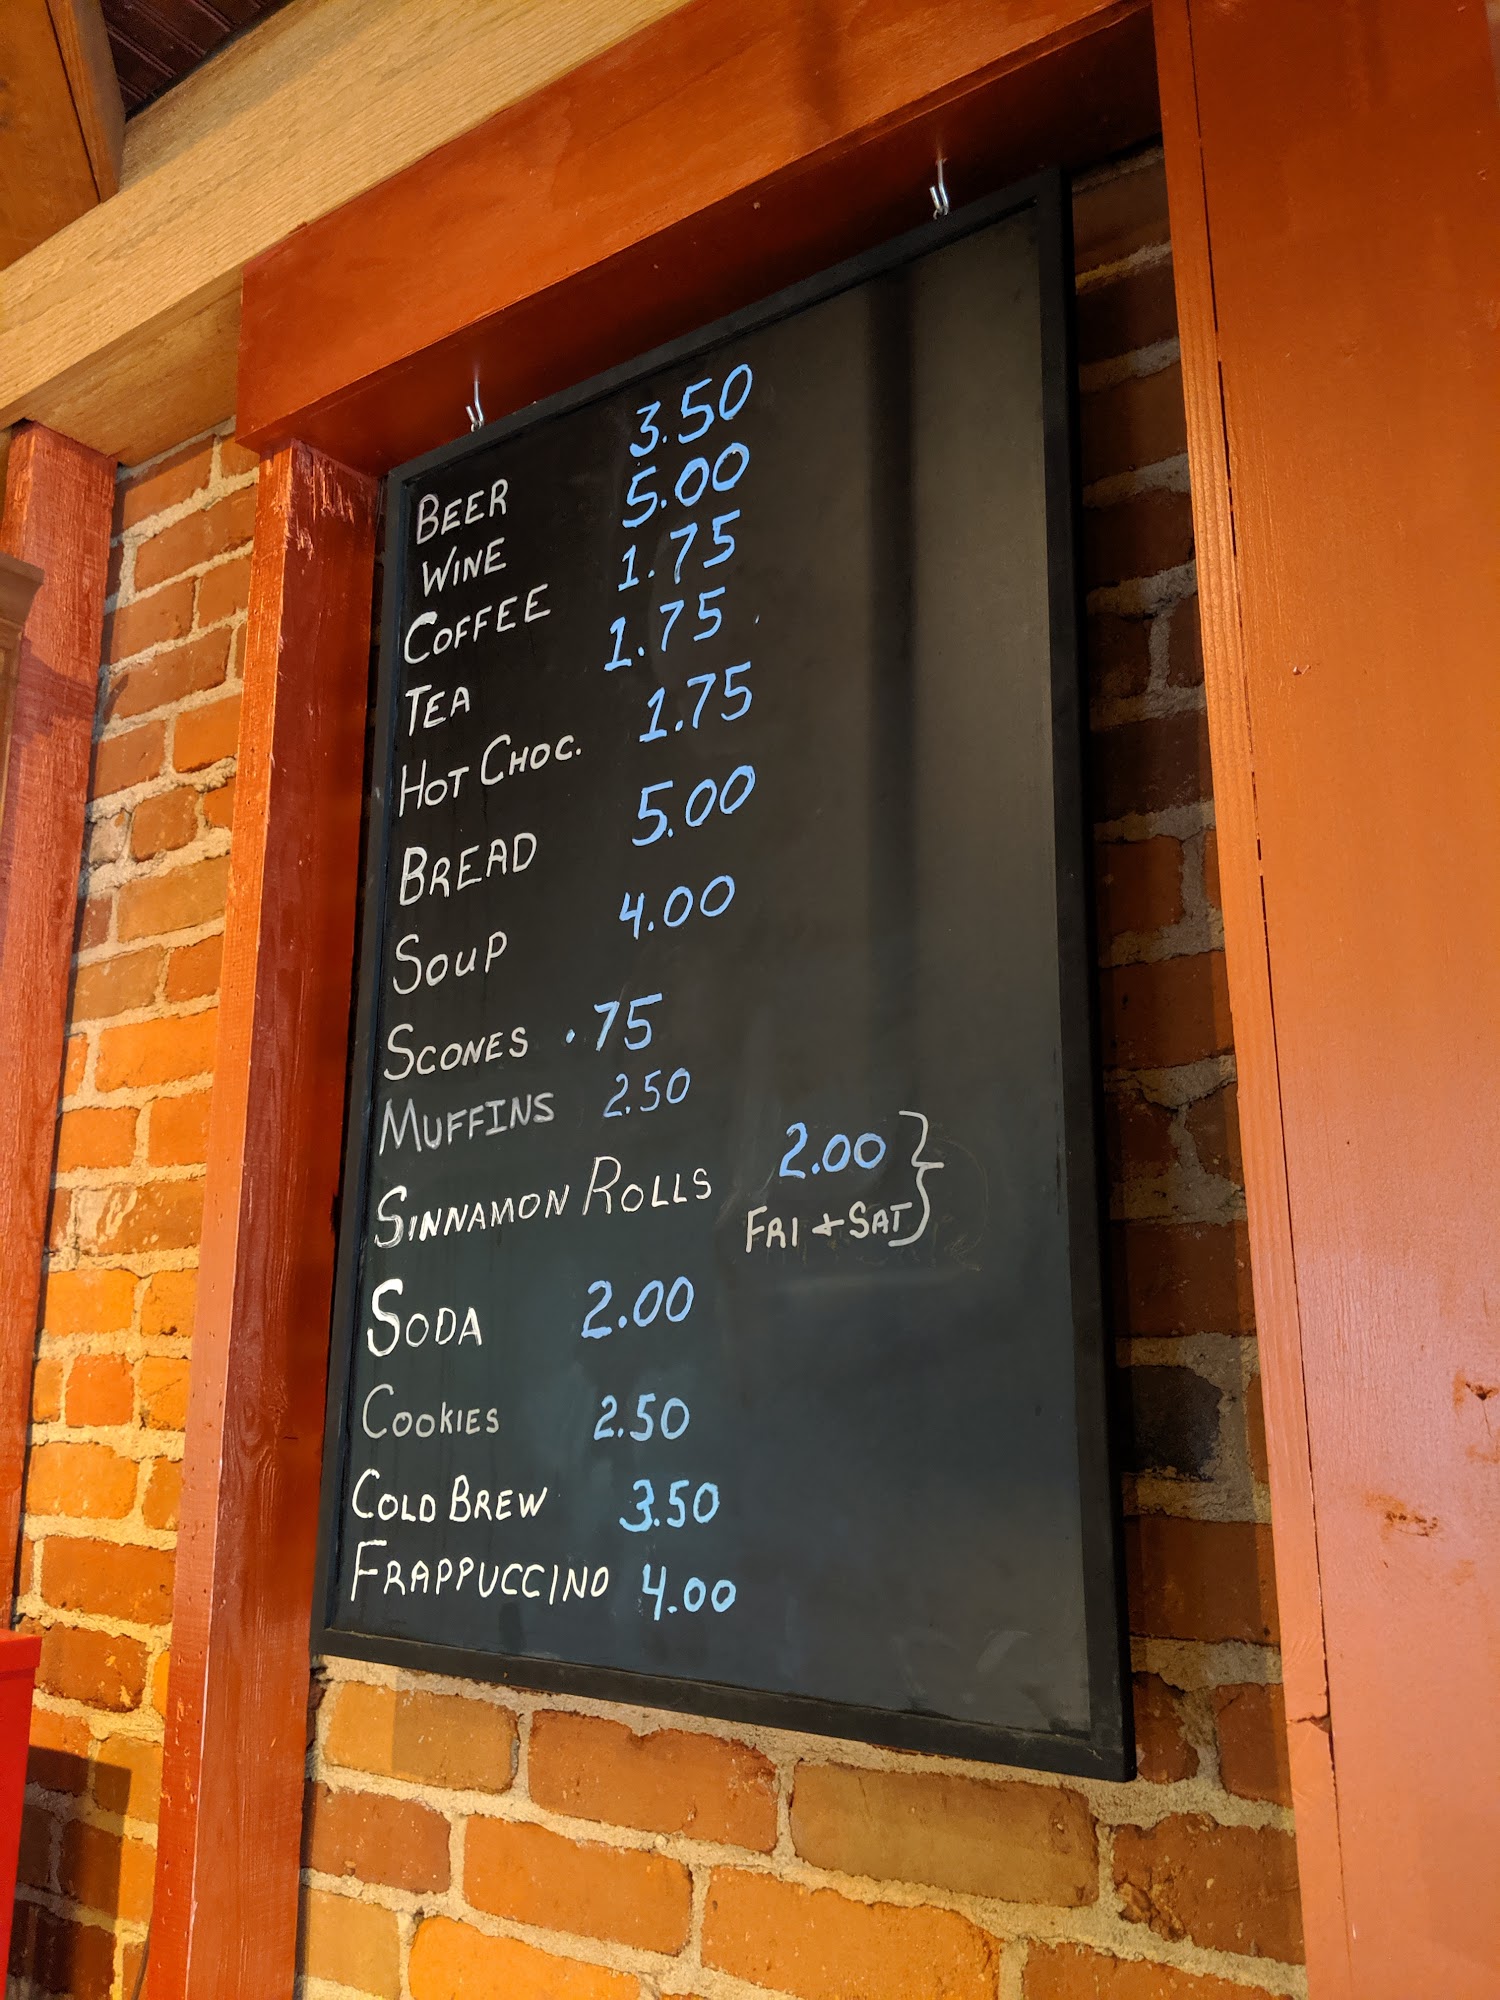 BEER 3.50
WINE 5.00
COFFEE 1.75
TEA 1.75
HOT CHOC. 1.75
BREAD 5.00
SOUP 4.00
SCONES .75
MUFFINS 2.50
SINNAMON ROLLS 2.00
FRI + SAT
SODA 2.00
COOKIES 2.50
COLD BREW 3.50
FRAPPUCCINO 4.00